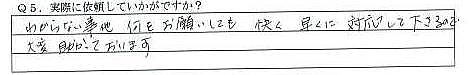 Q5. 実際に依頼していかがですか?
わからない事他 何をお願いしても 快く 早くに 対応して下さるので
大変 助かっております